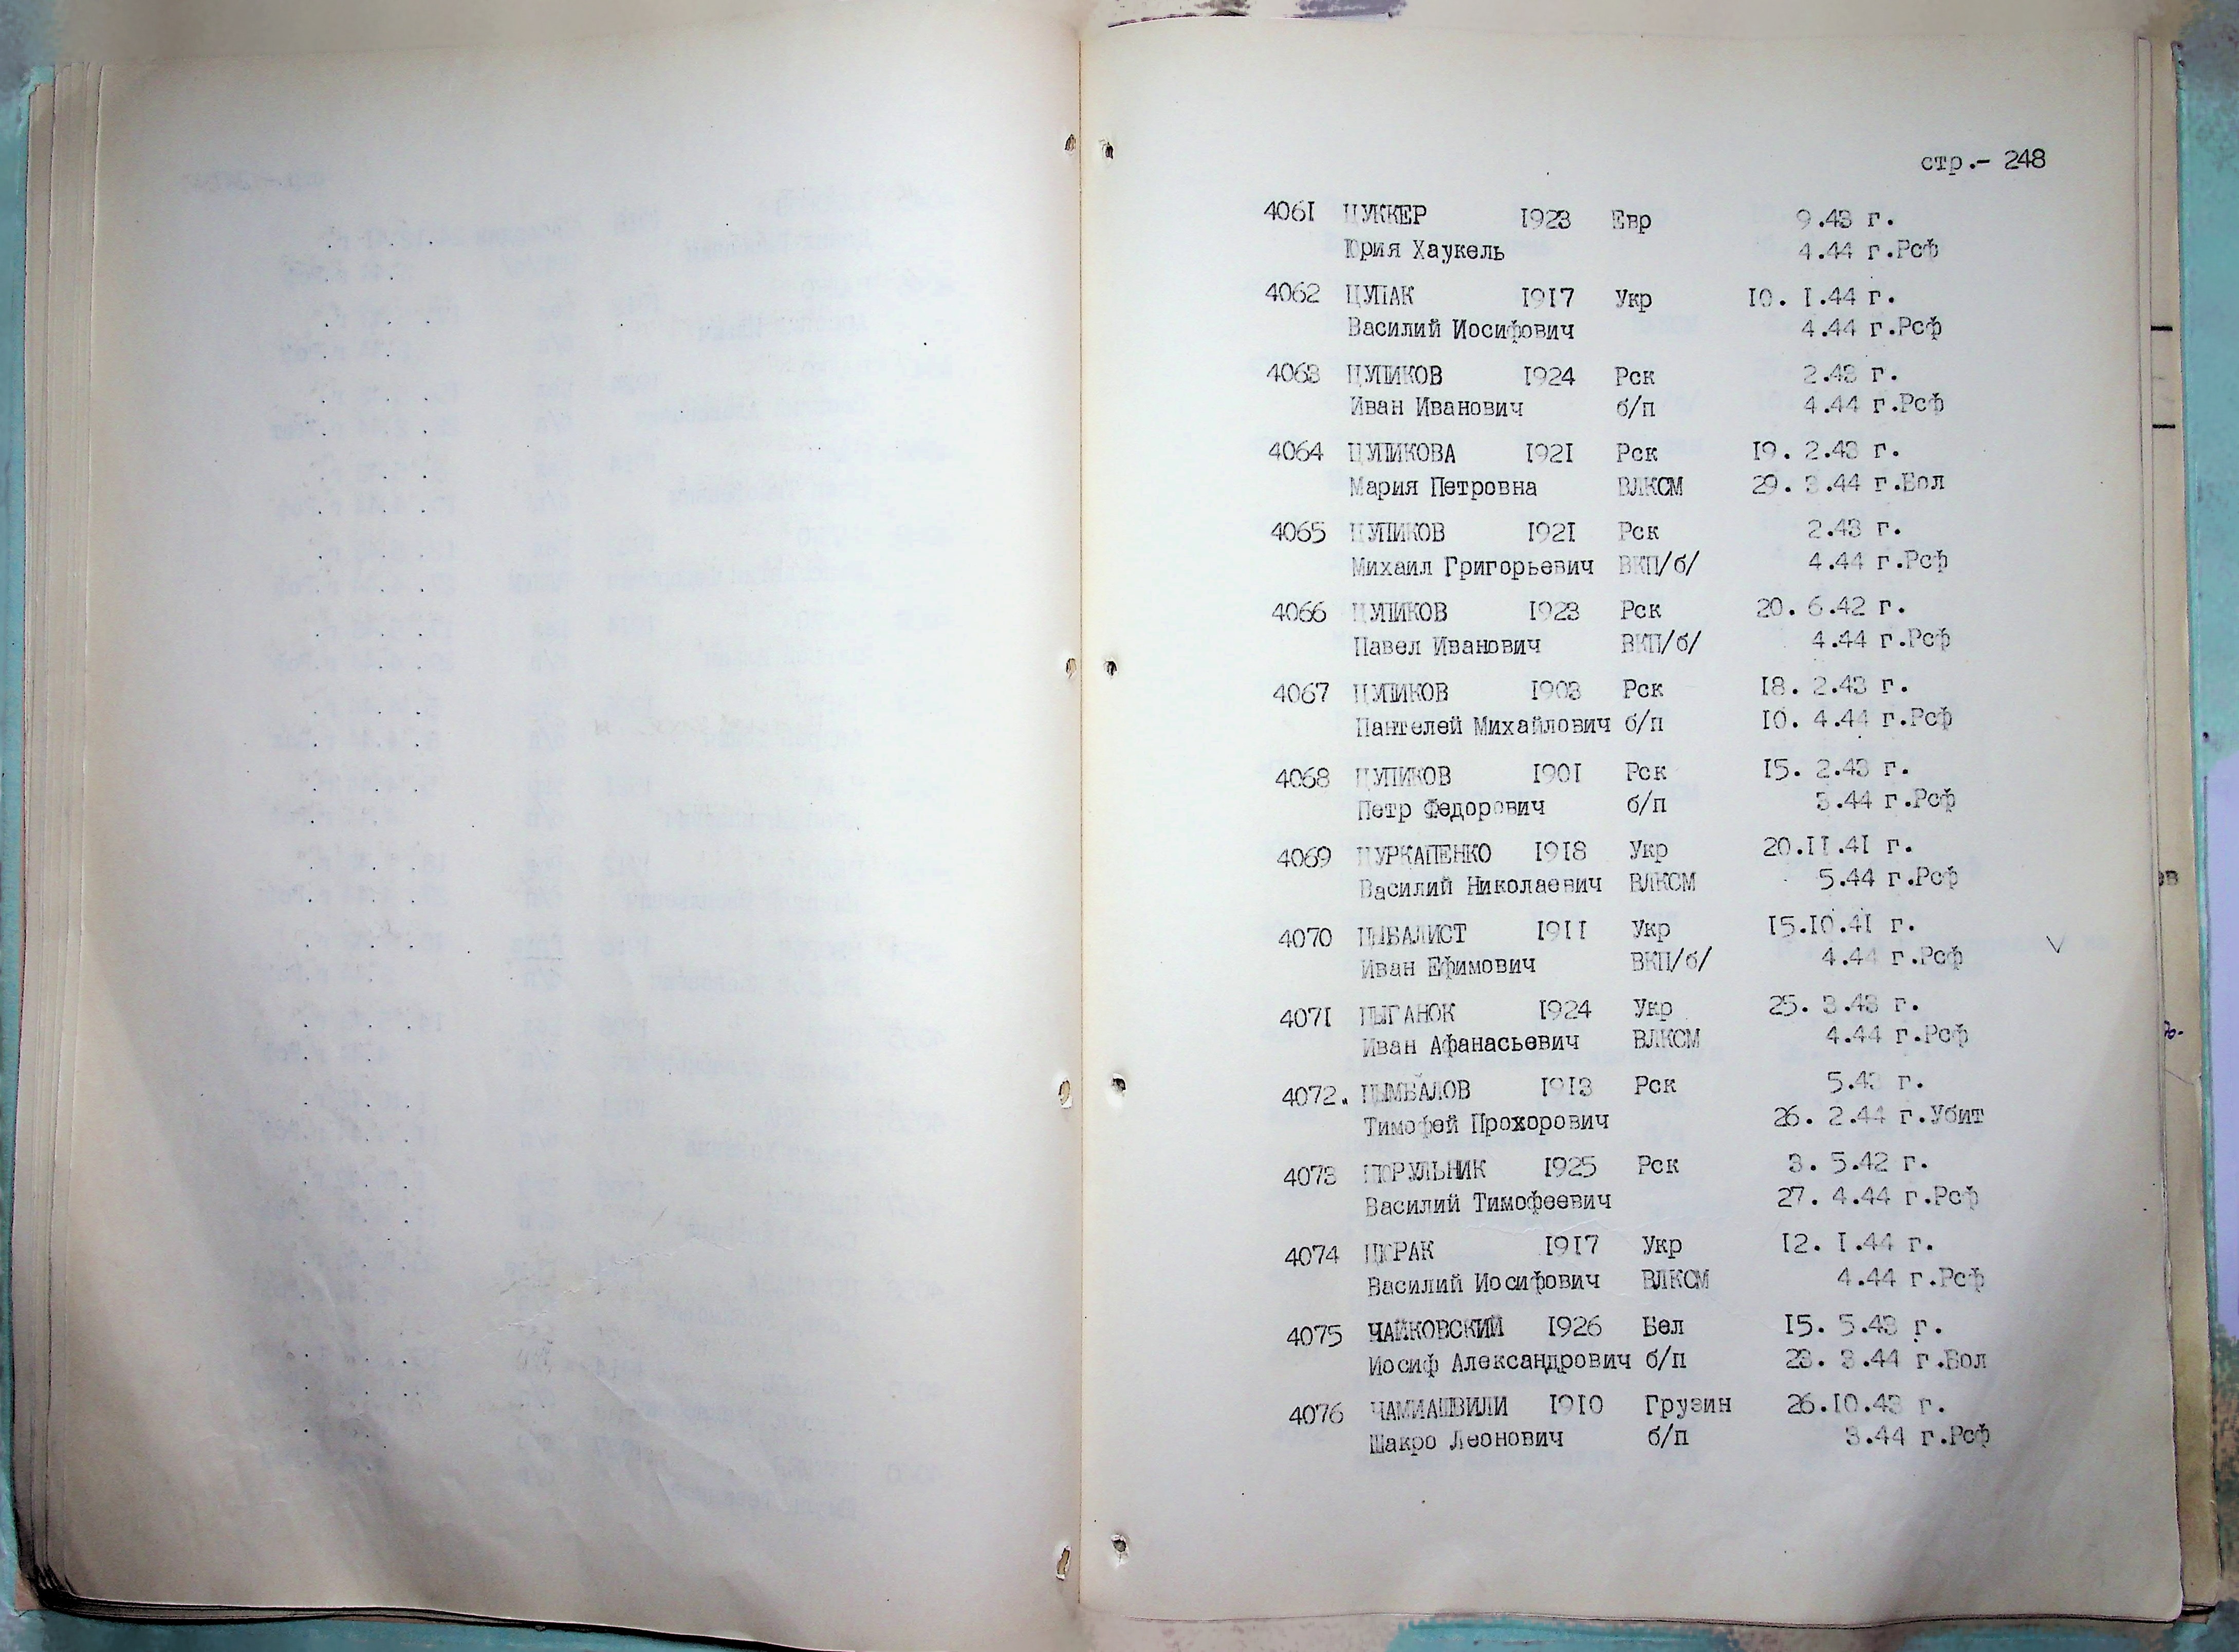 стр.- 248
4061 ЦУККЕР 1923 Евр 9.43 г.
Юрия Хаукель 4.44 г.Рсф
4062 ЦУПАК 1917 Укр 10. 1.44 г.
Василий Иосифович 4.44 г.Рсф
4063 ЦУПИКОВ 1924 Рск 2.43 г.
Иван Иванович б/п 4.44 г.Рсф
4064 ЦУПИКОВА 1921 Рск 19. 2.43 г.
Мария Петровна ВЛКСМ 29. 3.44 г.Бол
4065 ЦУПИКОВ 1921 Рск 2.43 г.
Михаил Григорьевич ВКП/б/ 4.44 г.Рсф
4066 ЦУПИКОВ 1923 Рск 20. 6.42 г.
Павел Иванович ВКП/б/ 4.44 г.Рсф
4067 ЦУПИКОВ 1903 Рск 18. 2.43 г.
Пантелей Михайлович б/п 10. 4.44 г.Рсф
4068 ЦУПИКОВ 1901 Рск 15. 2.43 г.
Петр Федорович б/п 3.44 г.Рсф
4069 ЦУРКАПЕНКО 1918 Укр 20.11.41 г.
Василий Николаевич ВЛКСМ 5.44 г.Рсф
4070 ЦЫБАЛИСТ 1911 Укр 15.10.41 г.
Иван Ефимович ВКП/б/ 4.44 г.Рсф
4071 ЦЫГАНОК 1924 Укр 25. 3.43 г.
Иван Афанасьевич ВЛКСМ 4.44 г.Рсф
4072. ЦЫМБАЛОВ 1913 Рск 5.43 г.
Тимофей Прохорович 26. 2.44 г.Убит
4073 ЦЮРУЛЬНИК 1925 Рск 3. 5.42 г.
Василий Тимофеевич 27. 4.44 г.Рсф
4074 ЦЮРАК 1917 Укр 12. 1.44 г.
Василий Иосифович ВЛКСМ 4.44 г.Рсф
4075 ЧАЙКОВСКИЙ 1926 Бел 15. 5.43 г.
Иосиф Александрович б/п 23. 3.44 г.Бол
4076 ЧАМИАШВИЛИ 1910 Грузин 26.10.43 г.
Шакро Леонович б/п 3.44 г.Рсф